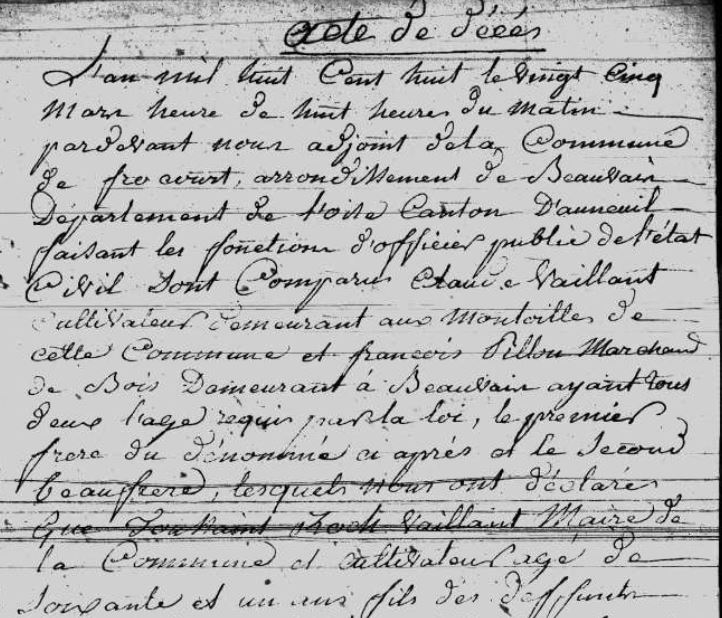 acte de décés
L'an mil huit Cent huit le vingt cinq
Mars heure de huit heures du matin
pardevant nous adjoint dela Commune
de frocourt, arrondissement de Beauvais
Département de l'oise Canton D'auneuil
faisant les fonctions d'officier public de l'état
Civil sont Comparus Claude Vaillant
Cultivateur demeurant aux Montoilles de
cette Commune et francois Pillon Marchand
de Bois Demeurant à Beauvais ayant tous
deux l'age requis par la loi, le premier
frere du dénommé ci aprés et le Second
beaufrere, lesquels nous ont déclarés
Que Toussaint Roch Vaillant Maire de
la Commune et cultivateur agé de
soixante et un ans fils des deffunts